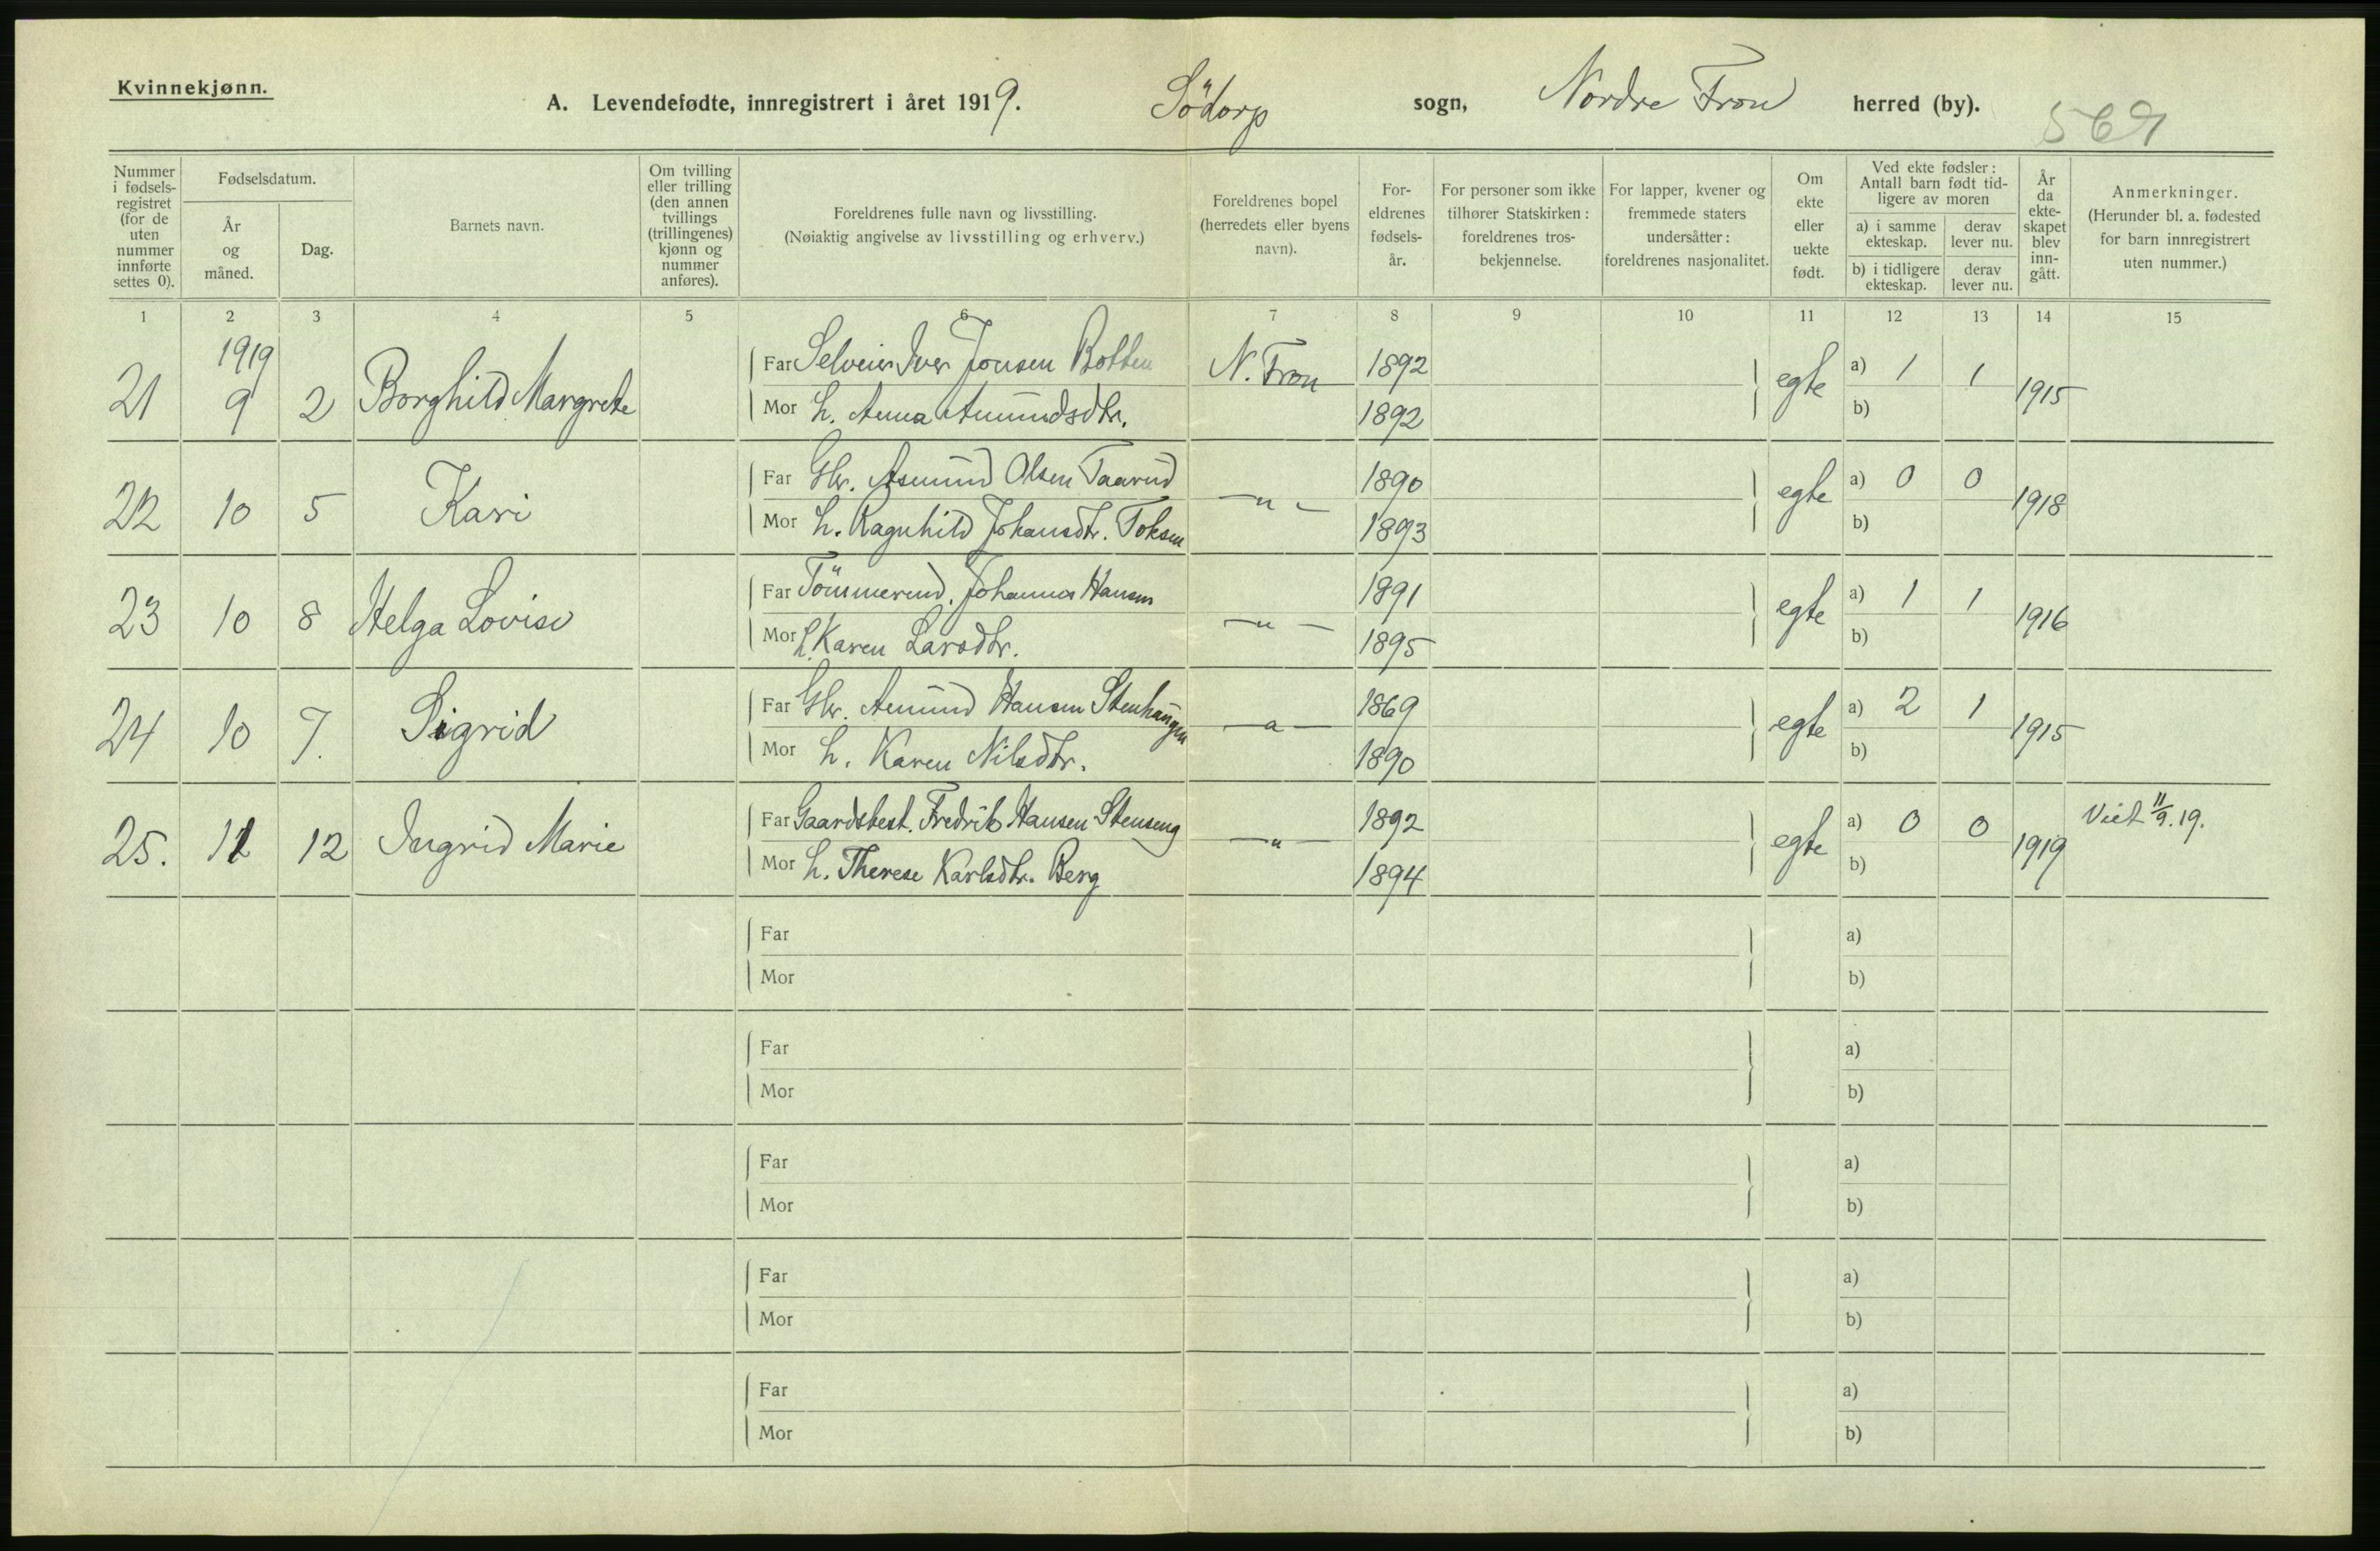 Kvinnekjønn.
A. Levendefødte, innregistrert i året 1919. Södorp sogn, Nordre Fron herred (by). 569
Nummer i fødsels-registret (for de uten nummer innførte settes 0).
Fødselsdatum.
År og måned.
Dag.
Barnets navn.
Om tvilling eller trilling (den annen tvillings (trillingenes) kjønn og nummer anføres).
Foreldrenes fulle navn og livsstilling.
(Nøiaktig angivelse av livsstilling og erhverv.)
Foreldrenes bopel (herredets eller byens navn).
For-eldrenes fødsels-år.
For personer som ikke tilhører Statskirken: foreldrenes tros-bekjennelse.
For lapper, kvener og fremmede staters undersåtter: foreldrenes nasjonalitet.
Om ekte eller uekte født.
Ved ekte fødsler: Antall barn født tid-ligere av moren
a) i samme ekteskap. derav lever nu.
b) i tidligere ekteskap. derav lever nu.
År da ekte-skapet blev inn-gått.
Anmerkninger.
(Herunder bl. a. fødested for barn innregistrert uten nummer.)
1 2 3 4 5 6 7 8 9 10 11 12 13 14 15
1919
21 9 2 Borghild Margrete
Far Selveier Iver Jonsen Botten N. Fron 1892 egte a) 1 1 1915
Mor h. Anna Amundsdtr. 1892 b)
22 10 5 Kari
Far Gbr. Asmund Olsen Taarud —"— 1890 egte a) 0 0 1918
Mor h. Ragnhild Johansdtr. Toksen 1893 b)
23 10 8 Helga Lovise
Far Tömmermd. Johannes Hansen —"— 1891 egte a) 1 1 1916
Mor h. Karen Larsdtr. 1895 b)
24 10 7. Sigrid
Far Gbr. Amund Hansen Stenhaugen —"— 1869 egte a) 2 1 1915
Mor h. Karen Nilsdtr. 1890 b)
25. 12 Ingrid Marie
Far Gaardsbest. Fredrik Hansen Stenseng —"— 1892 egte a) 0 0 1919 Viet 11/9.19.
Mor h. Therese Karlsdtr. Berg 1894 b)
Far a)
Mor b)
Far a)
Mor b)
Far a)
Mor b)
Far a)
Mor b)
Far a)
Mor b)